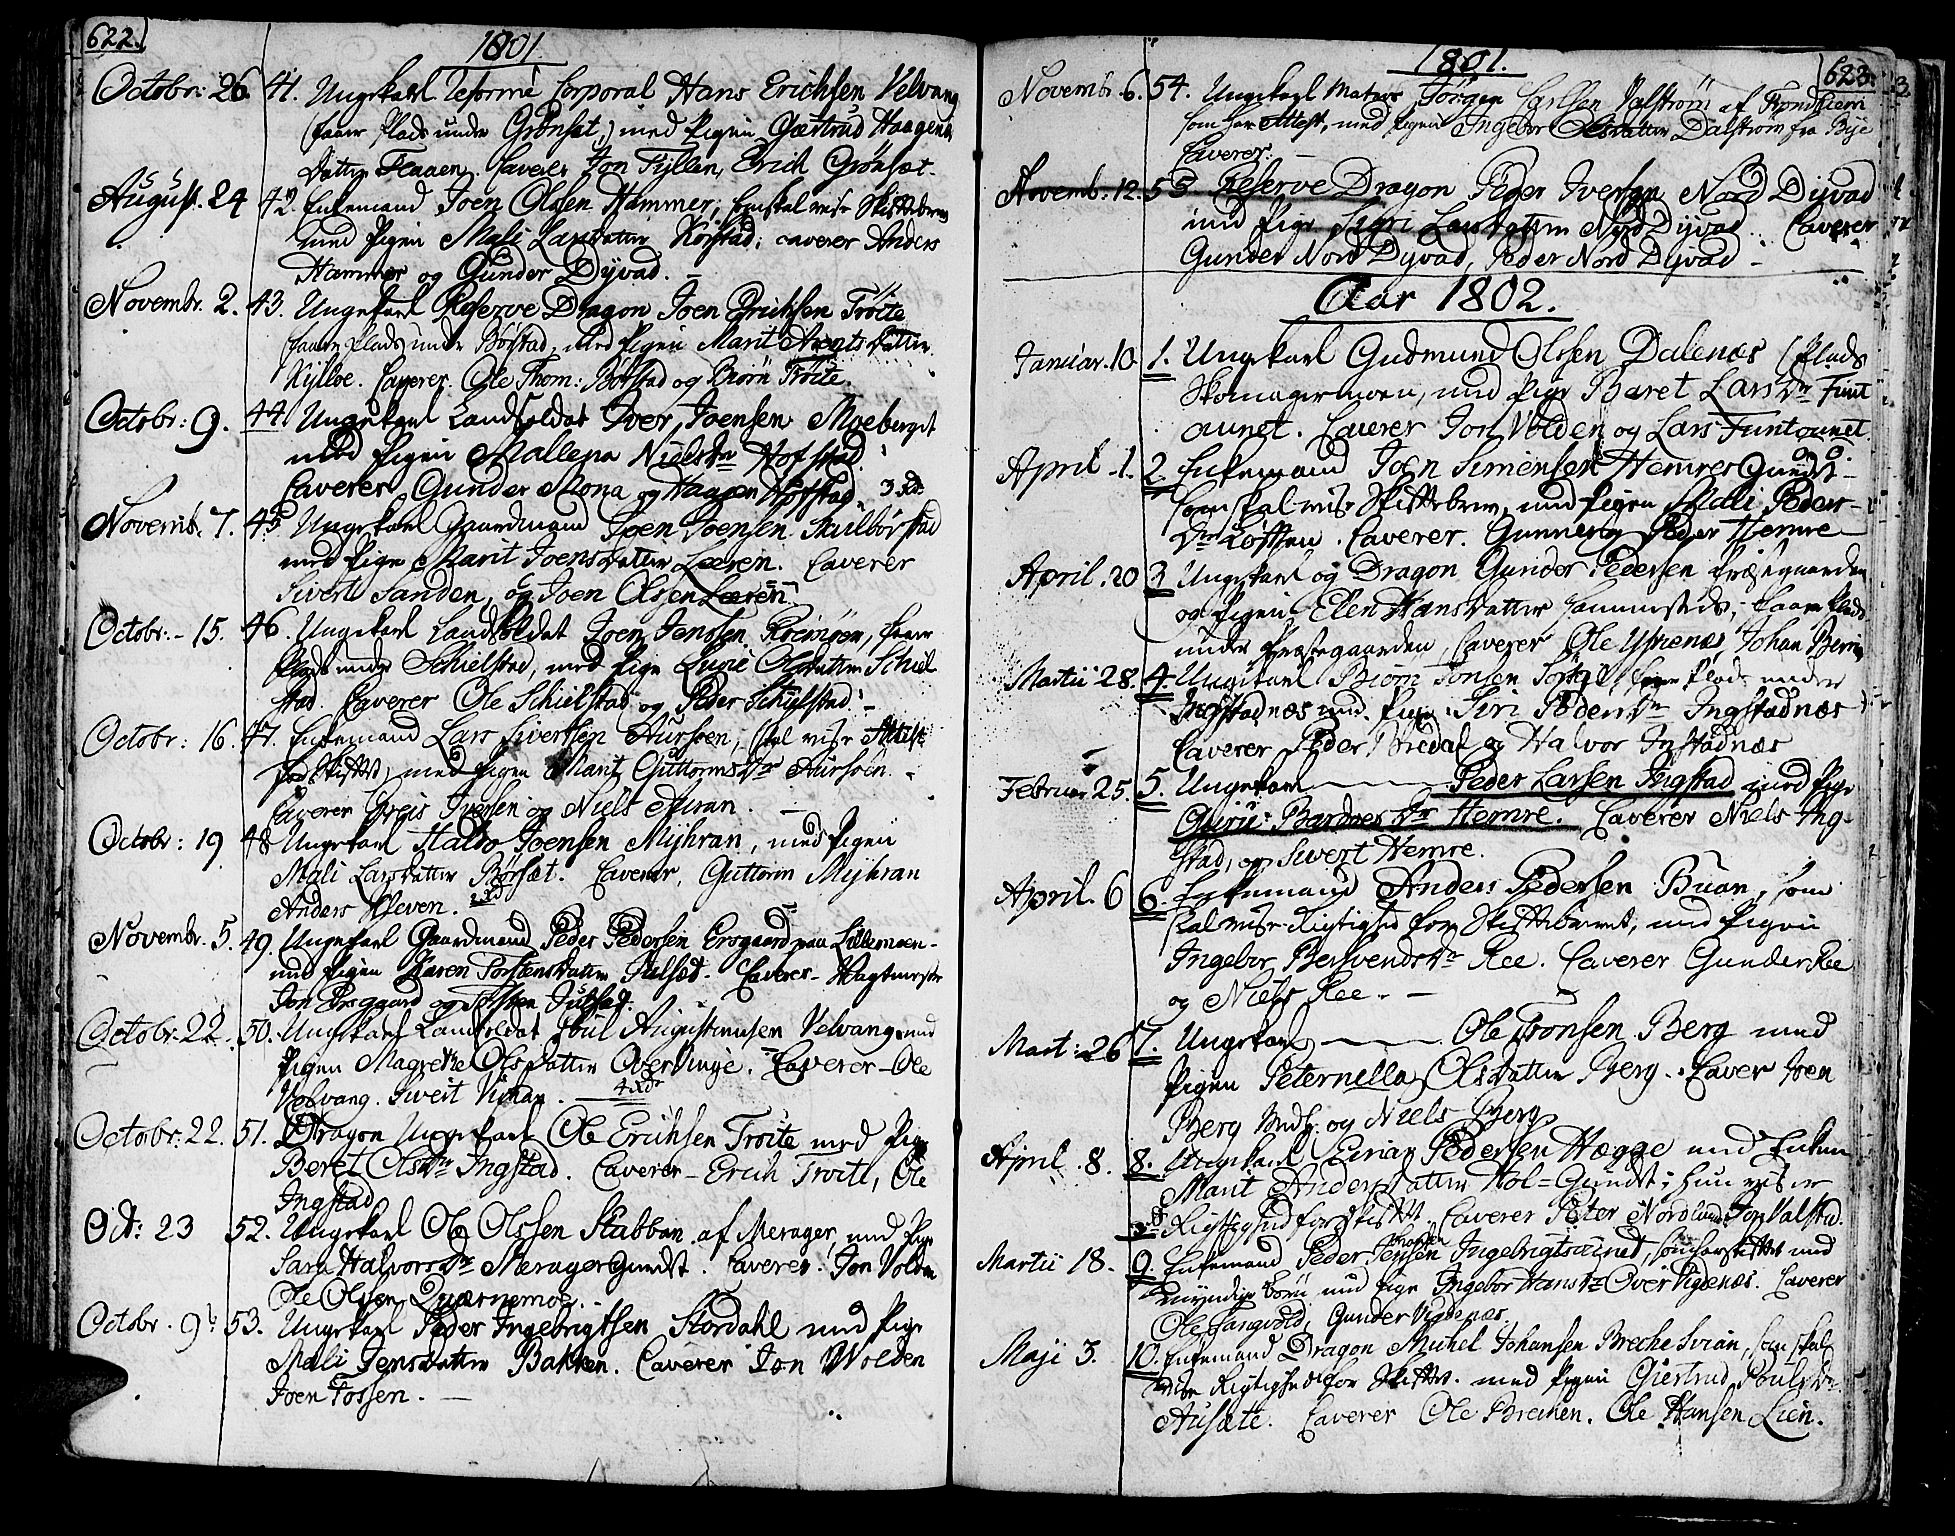 622.
1801
Octobr: 26. 41. Ungekarl reformé Corporal Hans Erichsen Velvang
(faaer Plads under Grönsæt,) med Pigen Giertrud Haagens
Datter Flaaen. Caverer Jon Fyllen, Erich Grönsæt.
August. 24 42. Enkemand Joen Olssen Hammer, som skal vise Skiftebrev
med Pigen Mali Larsdatter Körstad; caverer Anders
Hammer og Gunder Dyvad. –
Novembr. 2. 43. Ungekarl Reserve Dragon Joen Erichsen Tröite
faaer Plads under Börstad, med Pigen Marit Arentsdatter
Kylloe. Caverer. Ole Thom: Börstad og Biörn Tröite.
Octobr: 9. 44. Ungekarl Landsoldat Iver Joensen Moeberget
med Pigen Mallena Nielsdr Hofstad.
Caverer Gunder Mona og Haagen Hofstad. 3 Rdr
Novemb. 7. 45. Ungekarl Gaardmand Joen Joensen Skulbörstad
med Pige Marit Joensdatter Læren. Caverer
Sivert Sanden, og Joen Olsen Læren.
Octobr. – 15. 46. Ungekarl Landsoldat Joen Jenssen faaer
Plads under Schielstad, med Pige Lucie Olsdatter Schiel
stad. Caverer Ole Schielstad og Peder Schielstad. –
Octobr: 16. 47. Enkemand Lars Sivertsen Aursoen, skal vise Attest
for Skiftet, med Pigen Marit Guttormsdr Aursoen.
Caverer Greis Iversen og Niels Auran. –
Octobr: 19 48 Ungekarl Haldo Joensen Myhran, med Pigen
Mali Larsdatter Börsæt. Caverer, Guttorm Myhran
Anders Kleven. 2 Rd
Novembr. 5. 49. Ungekarl Gaardmand Peder Pedersen Ersgaard paa Lillemoen –
med Pigen Karen Torstensdatter Julset. Caverer – Vagtmester
Jon Ersgaard og Torsten Julset.
Octobr. 22. 50. Ungekarl Landsoldat Poul Augustinusen Velvang, med
Pigen Magrethe Olsdatter Overvinge. Caverer – Ole
Velvang. Sivert Vikan. 4 Rdr
Octobr: 22. 51. Dragon Ungekarl Ole Erichsen Tröite med Pige
Beret Olsdr Ingstad. Caverer – Erich Troite, Ole
Ingstad
Oct: 23 52. Ungekarl Ole Olssen Stubban af Merager, med Pige
Sara Halvorsdr Meragergundst. Caverer. Jon Volden
Ole Olsen Quærnemoe. –
Octobr. 9 53. Ungekarl Peder Ingebrigtsen Stordahl med Pige
Mali Jensdatter Bakken. Caverer Jon Wolden
Joen Fossen. –
1801.
623.
Novembr. 6. 54. Ungekarl Matros Jörgen Carlsen Dalström af Trondhiem
som har Attest, med Pigen Ingebor Olsdatter Dalström fra Bye
Caverer. –
Novemb. 12. 55 Reserve Dragon Peder Iversen Nord Dyvad
med Pige Sigri Larsdatter Nord Dyvad. Caverer
Gunder Nord Dyvad, Peder Nord Dyvad –
Aar 1802.
Januar. 10 1. Ungekarl Gudmund Olssen Dalenæs (Plads
Skomagermoen, med Pige Beret Larsdr Funt
aunet. Caverer Jon Volden og Lars Funtaunet.
April. 1. 2. Enkemand Joen Simensen Hemregundst
som skal vise Skiftebrev, med Pigen Mali Peders-
dr Loften. Caverer. Gunner og Peder Hemre
April. 20 3 Ungekarl og Dragon Gunder Pedersen Præstgaarden
og Pigen Elen Hansdatter sammesteds, faaer Plads
under Præstegaarden, Caverer Ole Ystenæs, Johan
Martii 28. 4. Ungekarl Biörn Jonsen faaer Plads under
Ingstadnæs med Pige Siri Pedersdr Ingstadnæs
Caverer Peder Bredal og Halvor Instadnæs
Februar 25. 5. Ungekarl Peder Larsen Ingstad med Pige
Guru: Bardoesdr Hemre. Caverer Niels Ing-
stad, og Sivert Hemre.
April. 6 6. Enkemand Anders Pedersen Buan, som
skal vise Rigtighed for Skiftebrevet, med Pigen
Ingebor Bersvendsdr Ree. Caverer Gunder Ree
og Niels Ree. –
Mart: 26 7. Ungekarl Ole Tronsen Berg med
Pigen Peternella Olsdatter Berg. Caver Joen
Berg og Niels Berg
April. 8. 8. Ungekarl Eirian Pedersen Hægge med Enken
Marit Andersdatter Hol=Gundst; hun viser
Rigtighed for Skiftet. Caverer Peter Nordlund, Jon Valstad.
Martii 18. 9. Enkemand Peder Jensen Ingebrigtsaunet, som har skiftet med
myndige Börn med Pige Ingebor Hansdr Over Vigdenæs. Caverer
Ole Langvold, Gunder Vigdenæs.
Maji 3. 10. Enkemand Dragon Michel Johansen Breche Svian, som skal
vise Rigtighed for Skiftet. med Pigen Giertrud Poulsdr
Ausæte. Caverer Ole Brechen. Ole Hansen Lien.